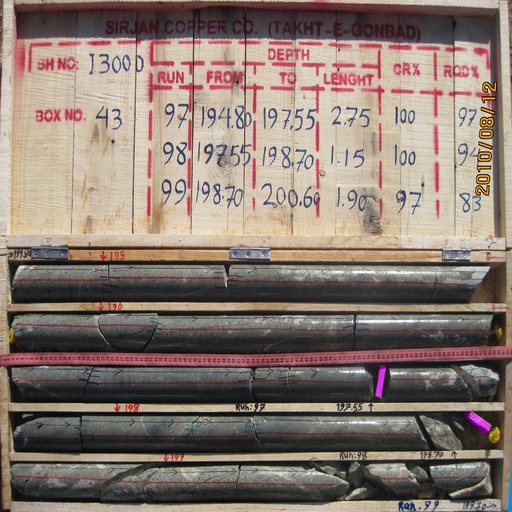 SIRJAN COPPER CO. (TAKHT-E-GONBAD)
BH NO: 13000 DEPTH CR% RQD%
RUN FROM TO LENGHT
BOX NO. 43 97 194.80 197.55 2.75 100 97
98 197.55 198.70 1.15 100 94
99 198.70 200.60 1.90 97 83
2010/08/12
195
196
198 Run:97 197.55
199 Run:98 198.70
Run.99 199.70